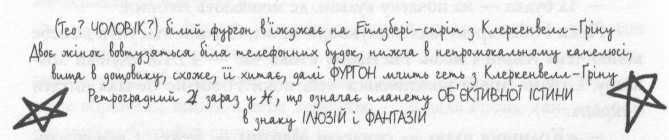 (Тео? ЧОЛОВІК?) білий фургон в'їжджає на Ейлзбері-стріт з Клеркенвелл-Ґріну
Двоє жінок вовтузяться біля телефонних будок, нижча в непромокальному капелюсі,
вища в дощовику, схоже, її хитає, далі ФУРГОН мчить геть з Клеркенвелл-Ґріну
Ретроградний ♃ зараз у ♓, що означає планету ОБ'ЄКТИВНОЇ ІСТИНИ
в знаку ІЛЮЗІЙ і ФАНТАЗІЙ